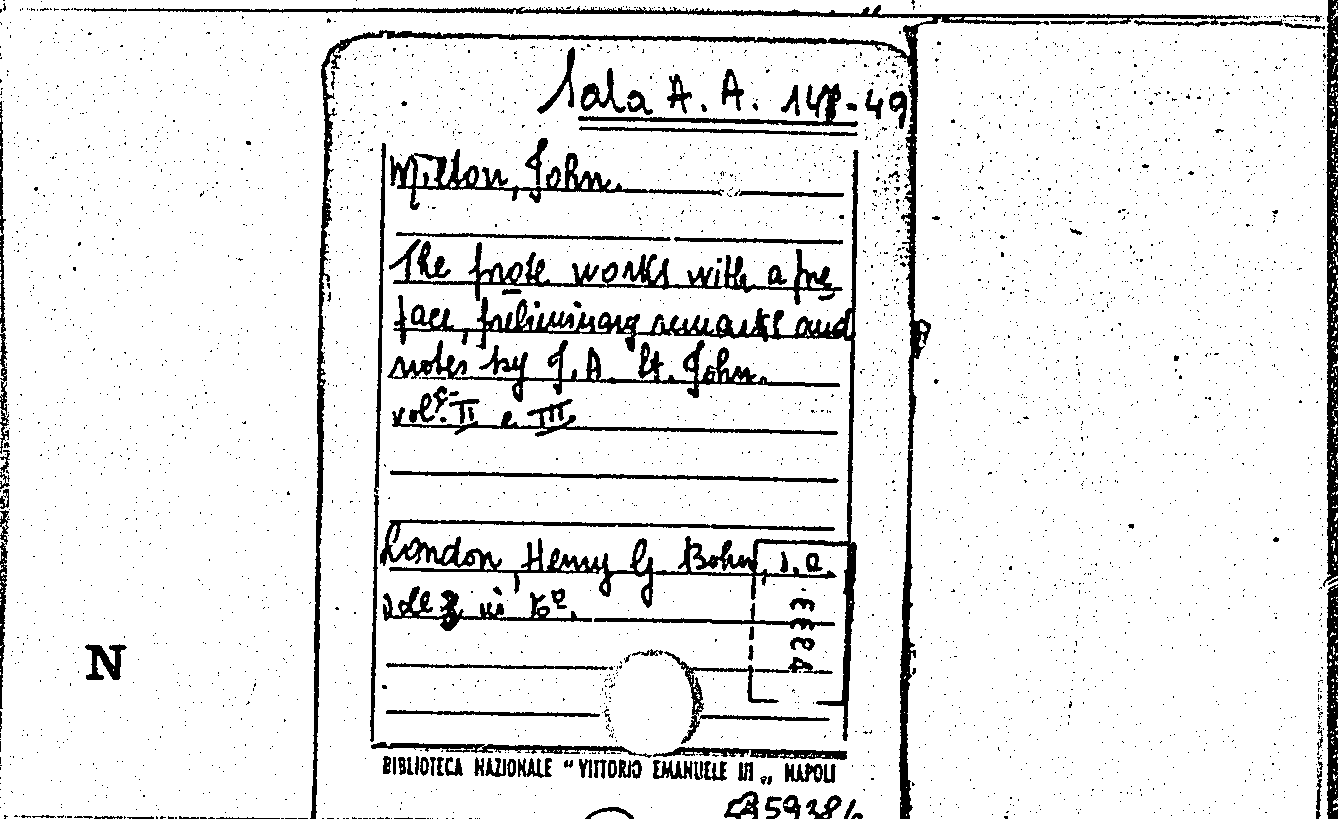 Sala A. A. 148-49
Milton, John.
The prose works with a pre
face, preliminary remarks and
notes by J. A. St. John.
vol.s II e III
London, Henry G. Bohn, s.a.
vol. 2 in
N
BIBLIOTECA NAZIONALE “ VITTORIO EMANUELE III „ NAPOLI